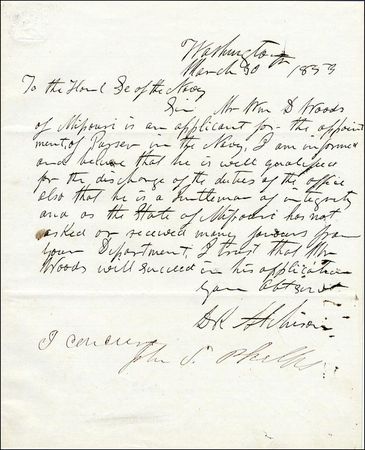 Washington
March 30 1853
To the Honl Se of the Navy
Sir Mr Wm D Woods
of Missouri is an applicant for the appoint
ment of Purser in the Navy, I am informed
and believe that he is well qualified
for the discharge of the duties of the office
also that he is a Gentleman of integrity
and as the State of Missouri has not
asked or received many favours from
your Department, I trust that Mr
Woods will succeed in his application
Your Obt Servt
D R Atchison
I concur
John S. Phelps